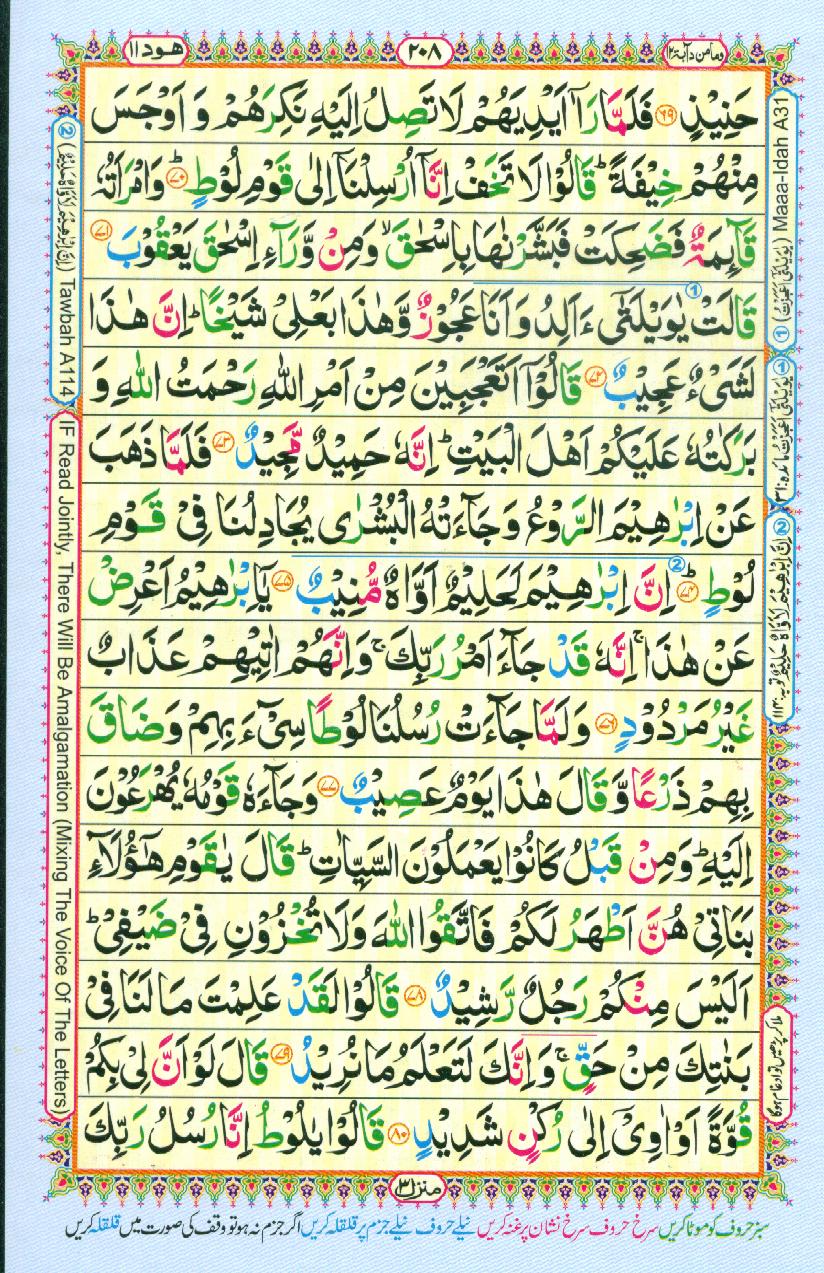 وما من دآبة ١٢
٢٠٨
هود ١١
حَنِيْذٍ ﴿٦٩﴾ فَلَمَّا رَاٰۤ اَيْدِيَهُمْ لَا تَصِلُ اِلَيْهِ نَكِرَهُمْ وَ اَوْجَسَ
مِنْهُمْ خِيْفَةً ؕ قَالُوْا لَا تَخَفْ اِنَّاۤ اُرْسِلْنَاۤ اِلٰى قَوْمِ لُوْطٍ ﴿٧٠﴾ؕ وَامْرَاَتُهٗ
قَآئِمَةٌ فَضَحِكَتْ فَبَشَّرْنٰهَا بِاِسْحٰقَ ۙ وَمِنْ وَّرَآءِ اِسْحٰقَ يَعْقُوْبَ ﴿٧١﴾
قَالَتْ يٰوَيْلَتٰٓى ءَاَلِدُ وَاَنَا عَجُوْزٌ وَّهٰذَا بَعْلِىْ شَيْخًا ؕ اِنَّ هٰذَا
لَشَىْءٌ عَجِيْبٌ ﴿٧٢﴾ قَالُوْۤا اَتَعْجَبِيْنَ مِنْ اَمْرِ اللّٰهِ رَحْمَتُ اللّٰهِ وَ
بَرَكٰتُهٗ عَلَيْكُمْ اَهْلَ الْبَيْتِ ؕ اِنَّهٗ حَمِيْدٌ مَّجِيْدٌ ﴿٧٣﴾ فَلَمَّا ذَهَبَ
عَنْ اِبْرٰهِيْمَ الرَّوْعُ وَجَآءَتْهُ الْبُشْرٰى يُجَادِلُنَا فِىْ قَوْمِ
لُوْطٍ ﴿٧٤﴾ؕ اِنَّ اِبْرٰهِيْمَ لَحَلِيْمٌ اَوَّاهٌ مُّنِيْبٌ ﴿٧٥﴾ يٰۤاِبْرٰهِيْمُ اَعْرِضْ
عَنْ هٰذَا ۚ اِنَّهٗ قَدْ جَآءَ اَمْرُ رَبِّكَ ۚ وَاِنَّهُمْ اٰتِيْهِمْ عَذَابٌ
غَيْرُ مَرْدُوْدٍ ﴿٧٦﴾ وَلَمَّا جَآءَتْ رُسُلُنَا لُوْطًا سِىْٓءَ بِهِمْ وَضَاقَ
بِهِمْ ذَرْعًا وَّقَالَ هٰذَا يَوْمٌ عَصِيْبٌ ﴿٧٧﴾ وَجَآءَهٗ قَوْمُهٗ يُهْرَعُوْنَ
اِلَيْهِ ؕ وَمِنْ قَبْلُ كَانُوْا يَعْمَلُوْنَ السَّيِّاٰتِ ؕ قَالَ يٰقَوْمِ هٰٓؤُلَآءِ
بَنَاتِىْ هُنَّ اَطْهَرُ لَكُمْ فَاتَّقُوا اللّٰهَ وَلَا تُخْزُوْنِ فِىْ ضَيْفِىْ ؕ
اَلَيْسَ مِنْكُمْ رَجُلٌ رَّشِيْدٌ ﴿٧٨﴾ قَالُوْا لَقَدْ عَلِمْتَ مَا لَنَا فِىْ
بَنٰتِكَ مِنْ حَقٍّ ۚ وَاِنَّكَ لَتَعْلَمُ مَا نُرِيْدُ ﴿٧٩﴾ قَالَ لَوْ اَنَّ لِىْ بِكُمْ
قُوَّةً اَوْ اٰوِىْۤ اِلٰى رُكْنٍ شَدِيْدٍ ﴿٨٠﴾ قَالُوْا يٰلُوْطُ اِنَّا رُسُلُ رَبِّكَ
منزل ٣
سبز حروف کو موٹا کریں سرخ حروف سرخ نشان پر غنہ کریں نیلے حروف نیلے جزم پر قلقلہ کریں اگر جزم نہ ہو تو وقف کی صورت میں قلقلہ کریں
① (يٰوَيْلَتٰٓى اَعَجَزْتُ) Maaa-Idah A31
① يٰوَيْلَتٰٓى اَعَجَزْتُ مائدہ: ٣١
② اِنَّ اِبْرٰهِيْمَ لَاَوَّاهٌ حَلِيْمٌ توبہ: ١١٣
ملا کر پڑھیں تو ادغام ہوگا
② (اِنَّ اِبْرٰهِيْمَ لَاَوَّاهٌ حَلِيْمٌ) Tawbah A114
IF Read Jointly, There Will Be Amalgamation (Mixing The Voice Of The Letters)